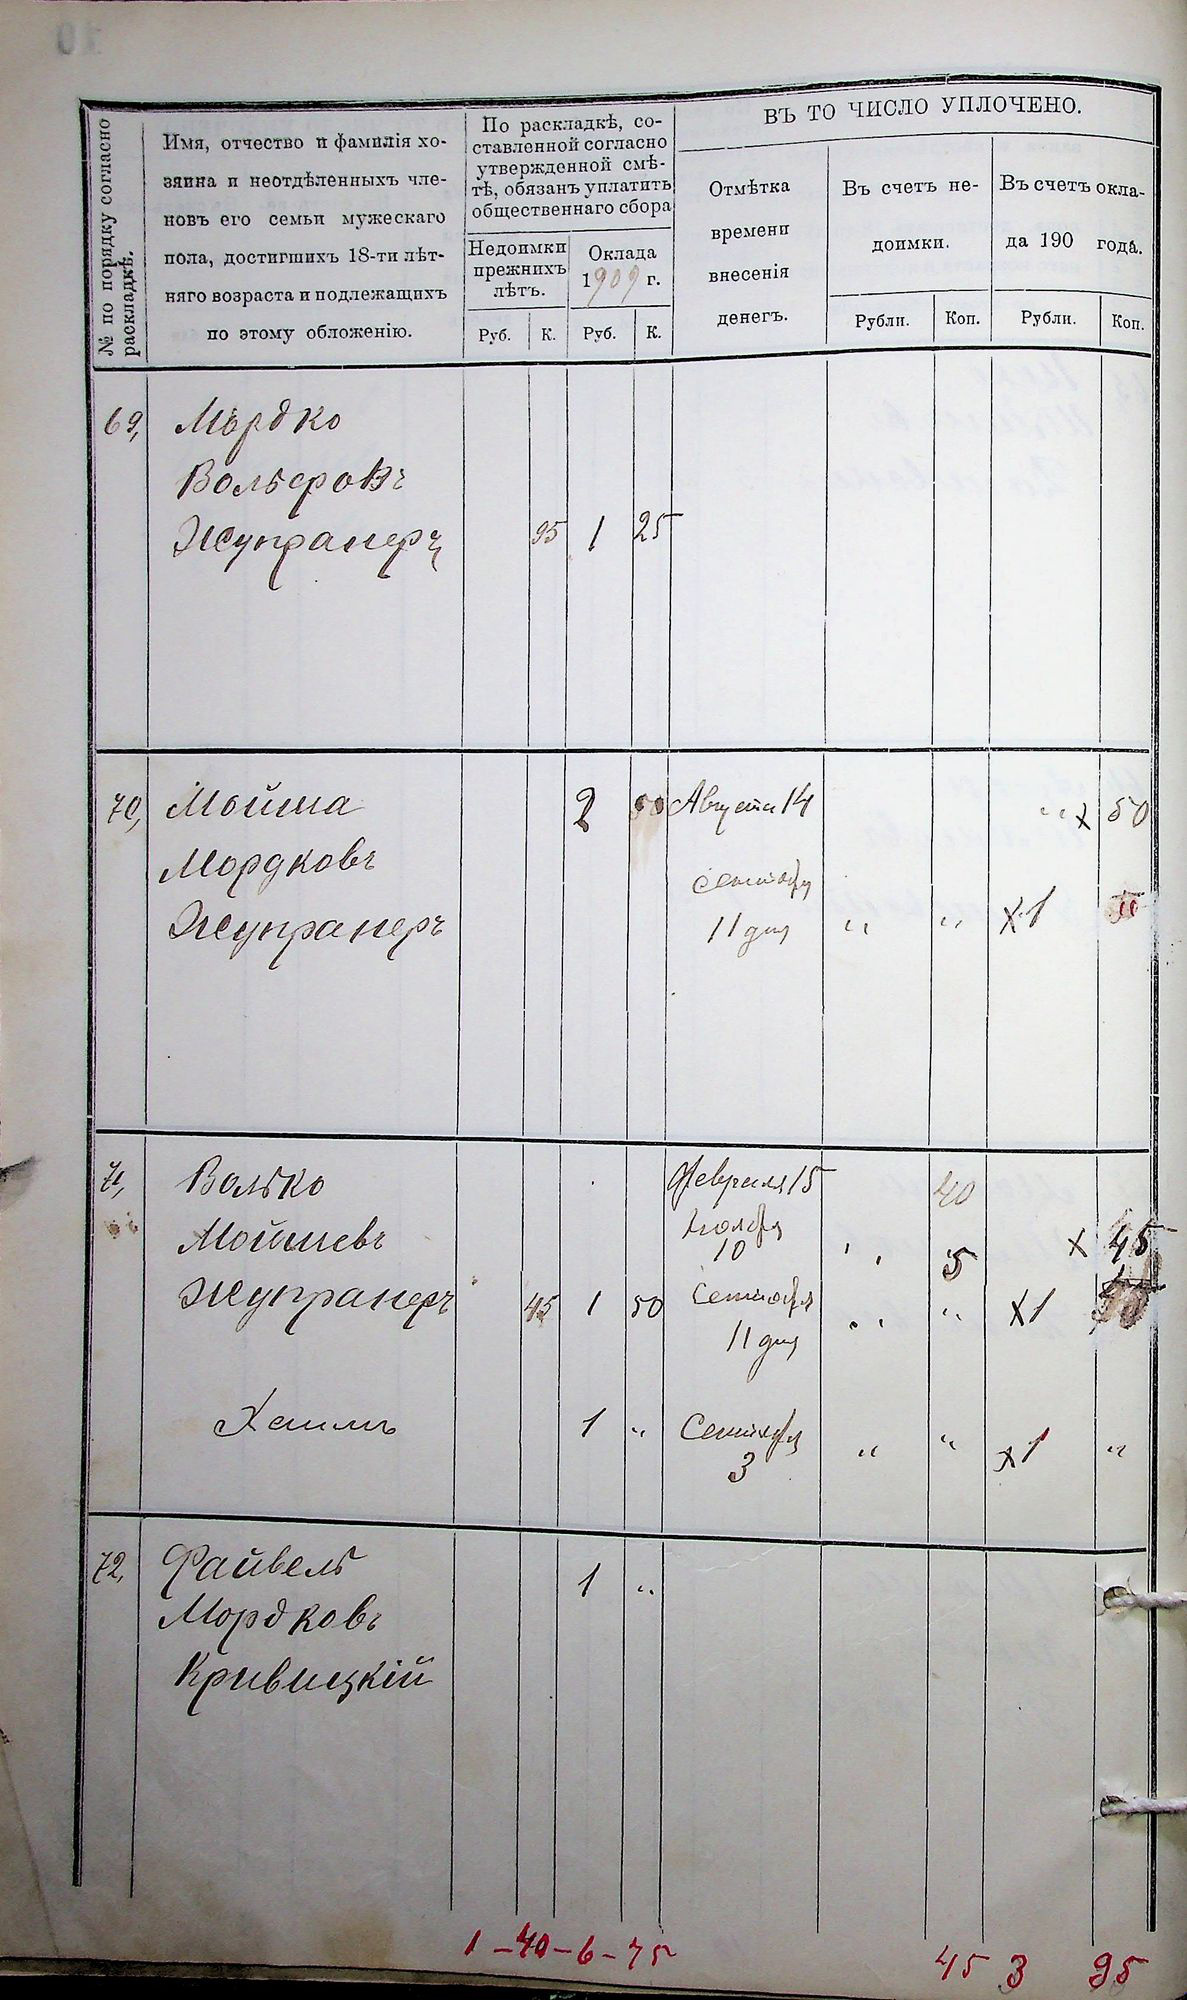 ВЪ ТО ЧИСЛО УПЛОЧЕНО.
№ по порядку согласно
раскладкѣ.
Имя, отчество и фамилія хо-
зяина и неотдѣленныхъ чле-
новъ его семьи мужескаго
пола, достигшихъ 18-ти лѣт-
няго возраста и подлежащихъ
по этому обложенію.
По раскладкѣ, со-
ставленной согласно
утвержденной смѣ-
тѣ, обязанъ уплатить
общественнаго сбора
Недоимки
прежнихъ
лѣтъ.
Оклада
1909 г.
Руб. К. Руб. К.
Отмѣтка
времени
внесенія
денегъ.
Въ счетъ не-
доимки.
Рубли. Коп.
Въ счетъ окла-
да 190 года.
Рубли. Коп.
69, Мордко
Вольфовъ
Жупранеръ 95 1 25
70, Мойша 2 50 Августа 14 " x 50
Мордковъ
Сентября
Жупранеръ 11 дня " " x1
71, Волько Февраля 15 40
Мойшевъ Ноября
10 " 5 x 45
Жупранеръ 45 1 50 Сентября " " x1
11 дня
Хаимъ 1 " Сентября
3 " " x1 "
72, Файвель 1 "
Мордковъ
Кривицкій
1 - 40 - 6 - 75 45 3 95